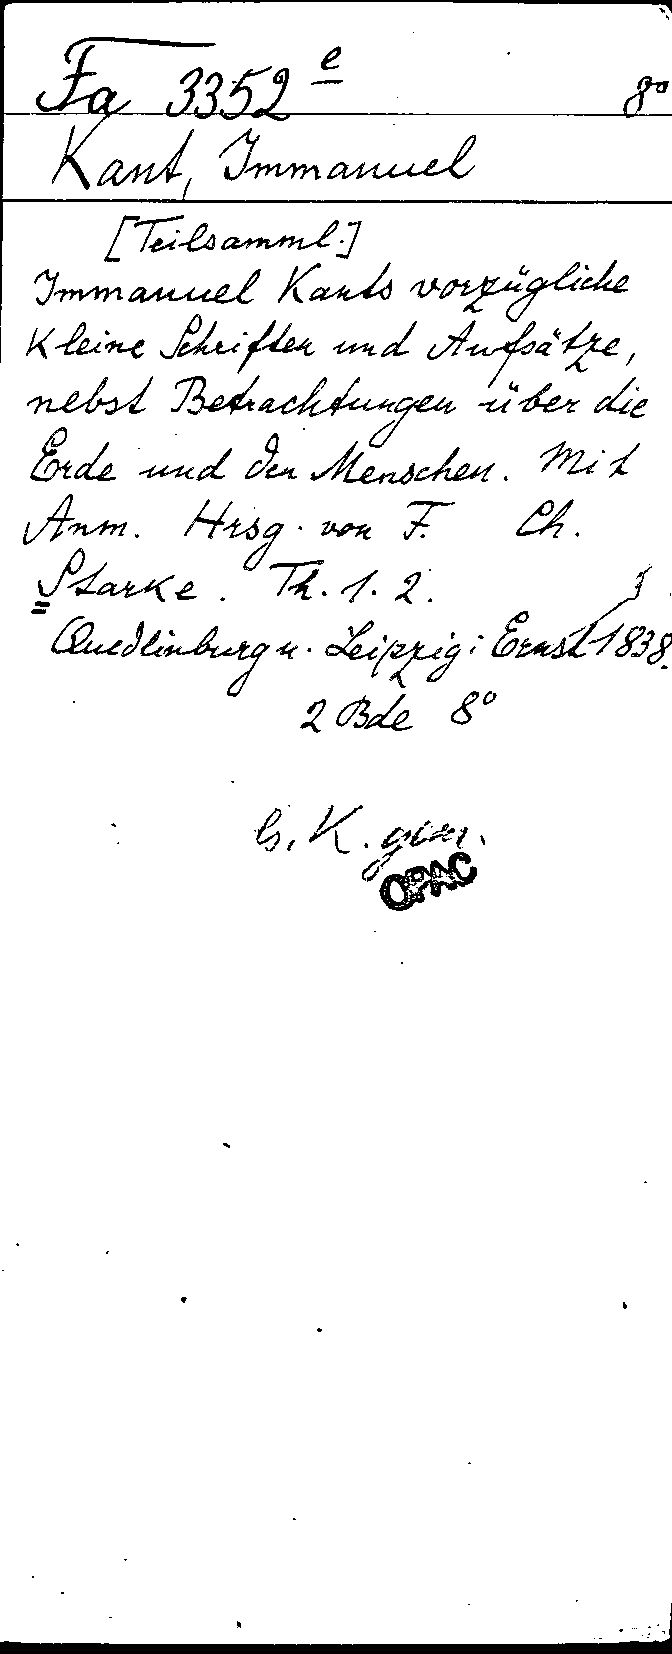 Fa 3352 e 8°
Kant, Immanuel
[Teilsamml.]
Immanuel Kants vorzügliche
Kleine Schriften und Aufsätze,
nebst Betrachtungen über die
Erde und den Menschen. Mit
Anm. Hrsg. von F. Ch.
Starke. Th. 1. 2.
Quedlinburg u. Leipzig: Ernst 1838.
2 Bde 8°
K.
OPAC